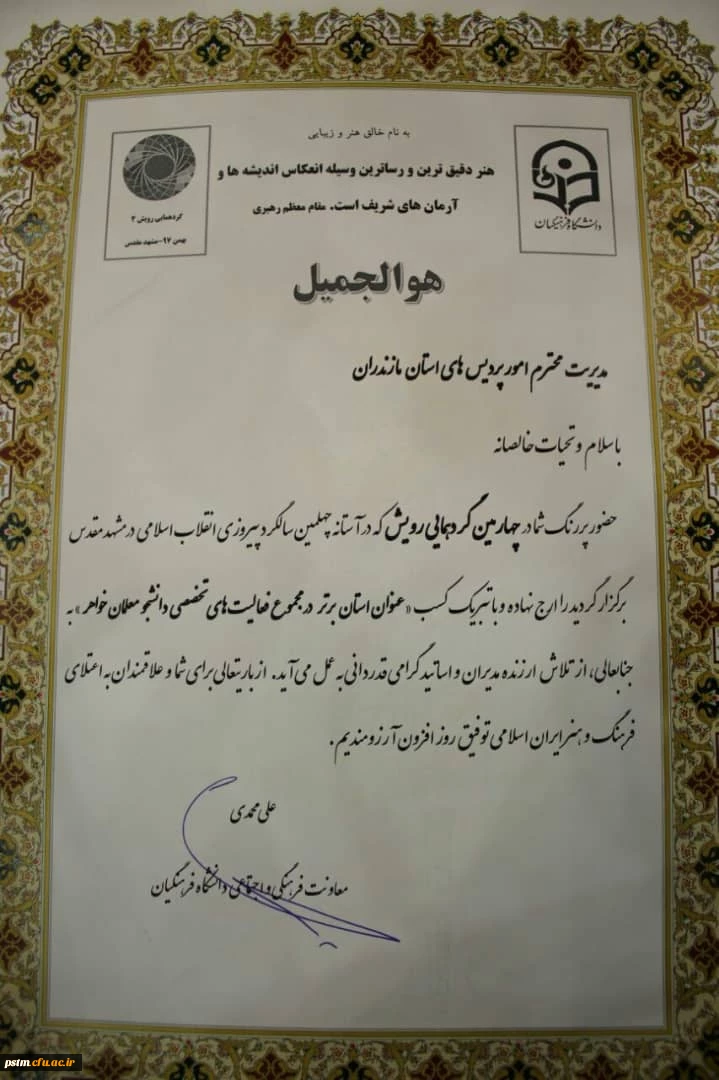 به نام خالق هنر و زیبایی
هنر دقیق ترین و رساترین وسیله انعکاس اندیشه ها و
آرمان های شریف است. مقام معظم رهبری
دانشگاه فرهنگیان
گردهمایی رویش ۴
بهمن ۹۷-مشهد مقدس
هوالجمیل
مدیریت محترم امور پردیس های استان مازندران
باسلام و تحیات خالصانه
حضور پررنگ شما در چهارمین گردهمایی رویش که در آستانه چهلمین سالگرد پیروزی انقلاب اسلامی در مشهد مقدس
برگزار گردید را ارج نهاده و با تبریک کسب «عنوان استان برتر در مجموع فعالیت های تخصصی دانشجو معلمان خواهر» به
جنابعالی، از تلاش ارزنده مدیران و اساتید گرامی قدردانی به عمل می آید. از باریتعالی برای شما و علاقمندان به اعتلای
فرهنگ و هنر ایران اسلامی توفیق روز افزون آرزومندیم.
علی محمدی
معاونت فرهنگی و اجتماعی دانشگاه فرهنگیان
pstm.cfu.ac.ir